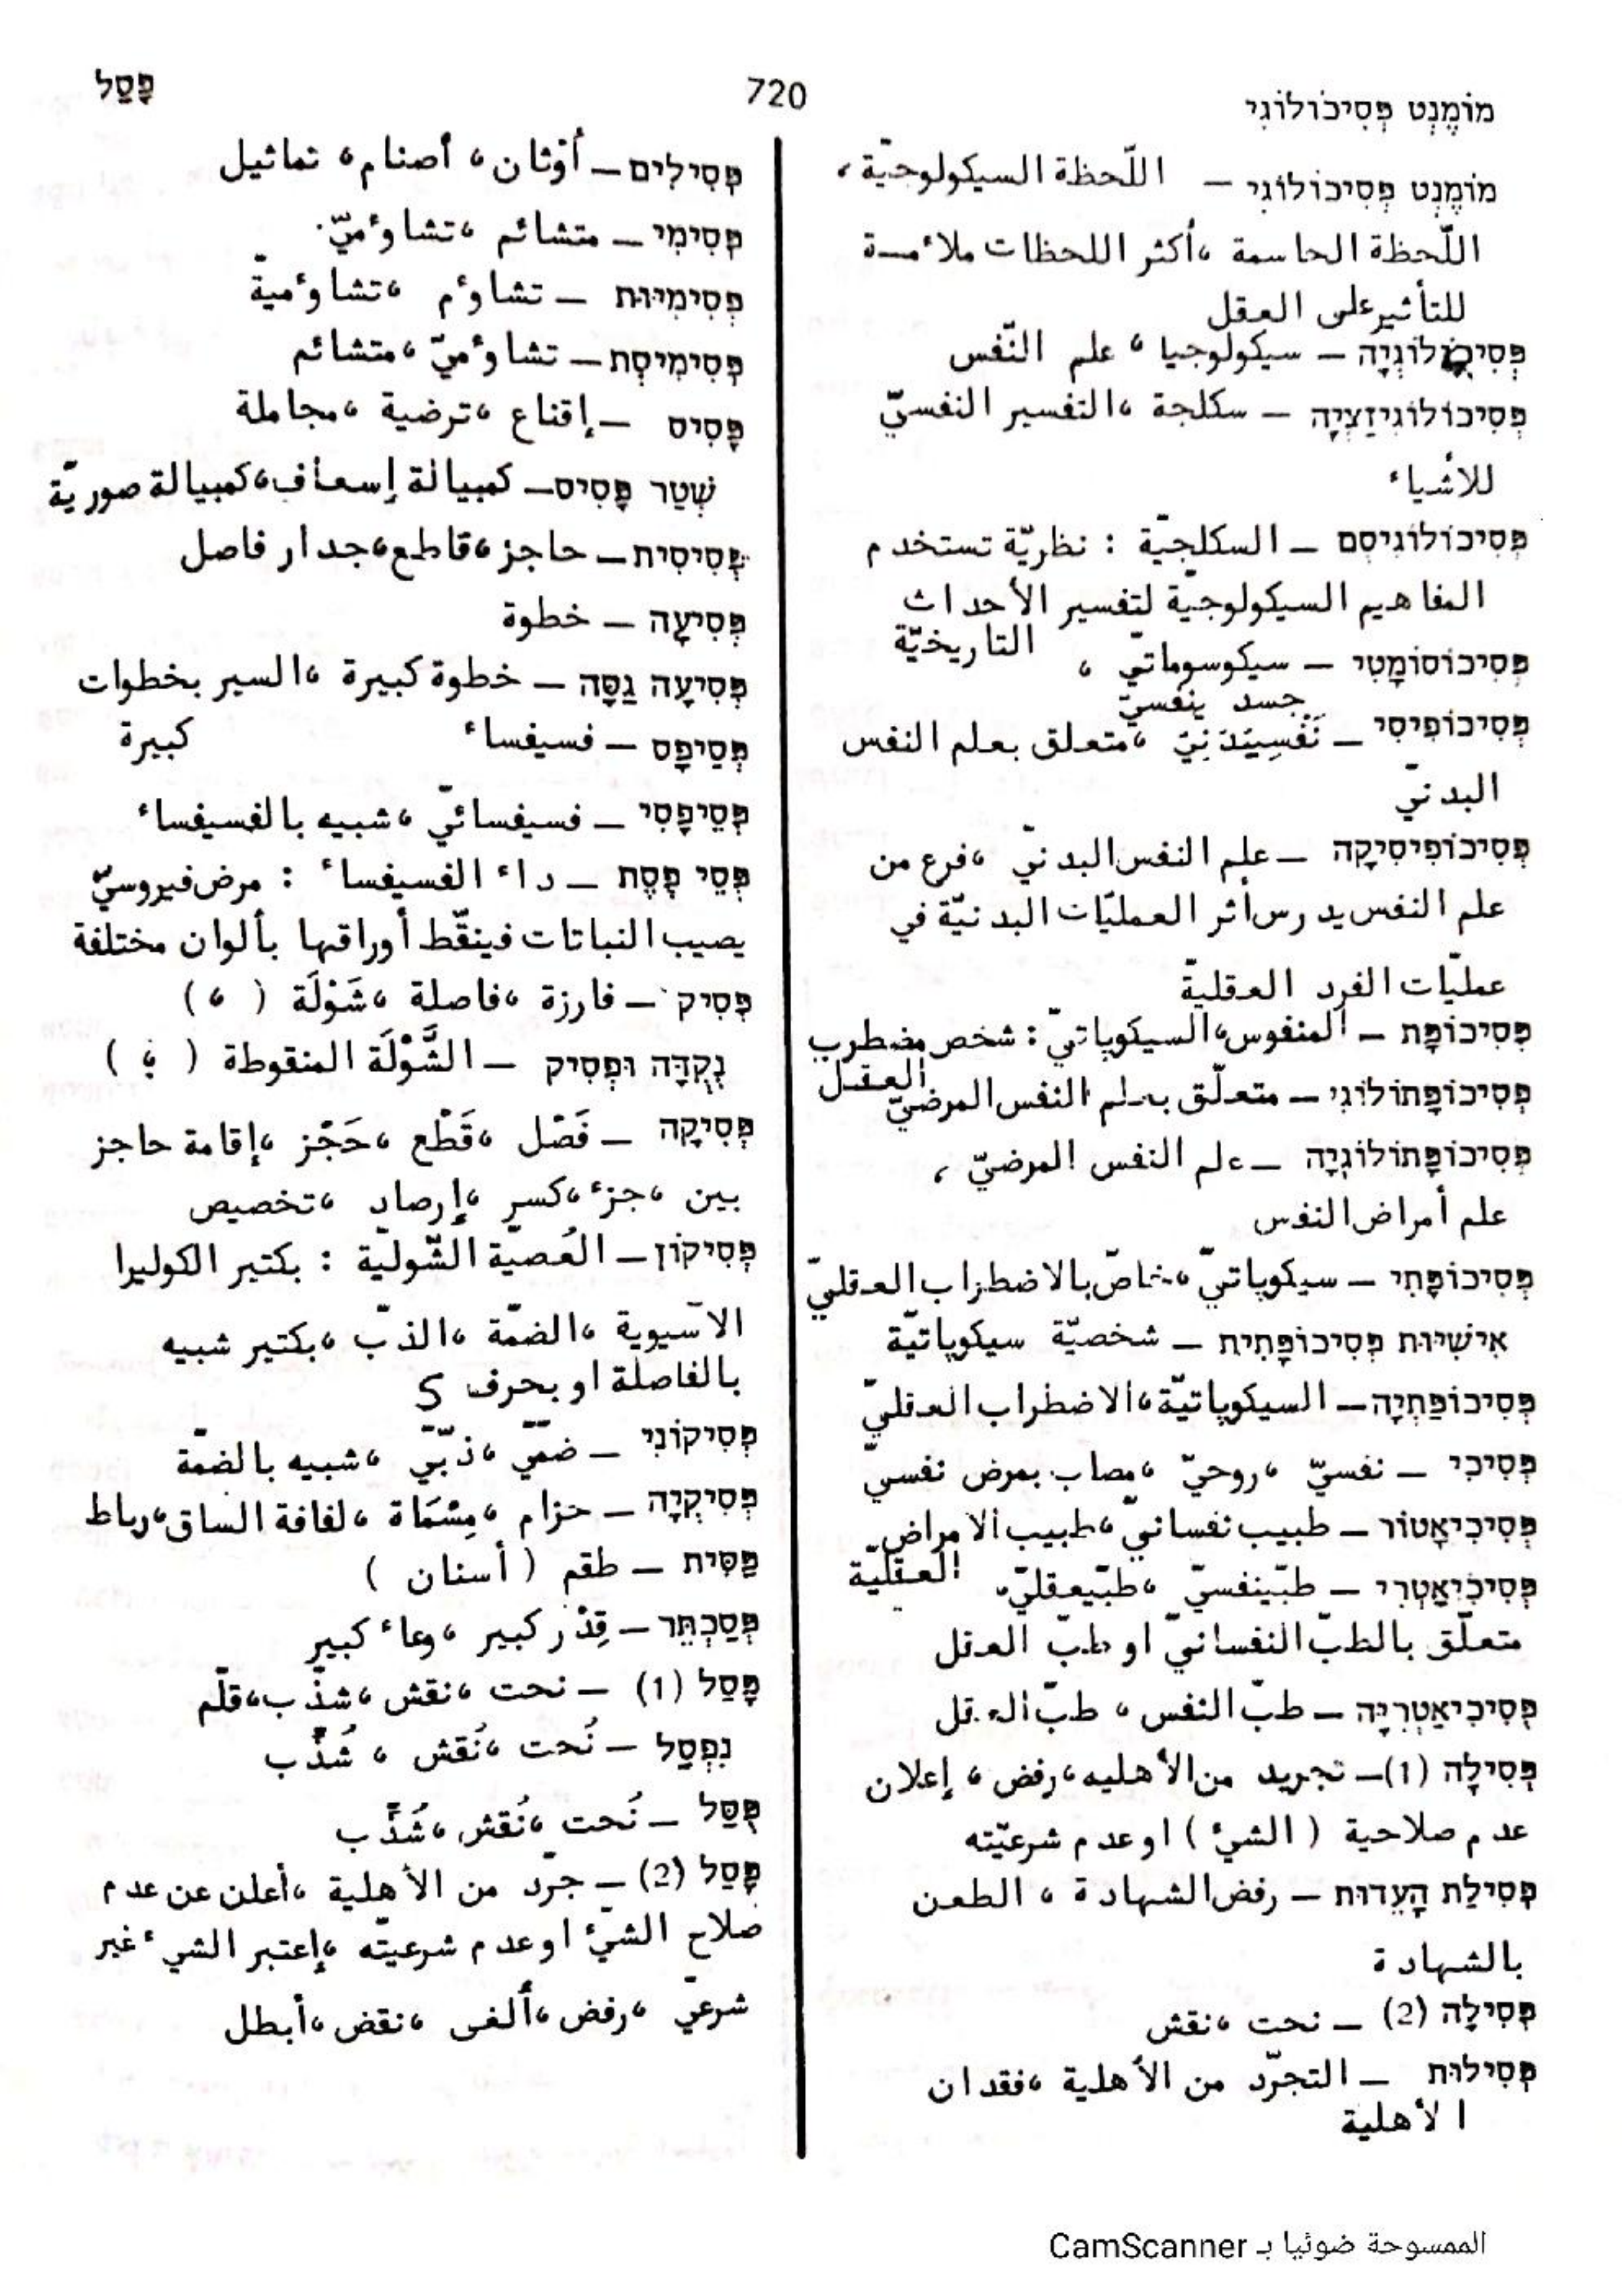 מוֹמֶנְט פְּסִיכוֹלוֹגִי
720
פָּסַל
מוֹמֶנְט פְּסִיכוֹלוֹגִי – اللّحظة السيكولوجيّة،
اللّحظة الحاسمة ،أكثر اللحظات ملاءمــة
للتأثيرعلى العقل
פְּסִיכוֹלוֹגְיָה – سيكولوجيا ، علم النّفس
פְּסִיכוֹלוֹגִיזַצְיָה – سكلجة ،التفسير النفسيّ
للأشياء
פְּסִיכוֹלוֹגִיסְם – السكلجيّة : نظريّة تستخدم
المفاهيم السيكولوجيّة لتفسير الأحداث
التاريخيّة
פְּסִיכוֹסוֹמָטִי – سيكوسوماتيّ ،
جسد ينفسيّ
פְּסִיכוֹפִיסִי – نَفْسِيَبَدَنِيّ ،متعلق بعلم النفس
البدنيّ
פְּסִיכוֹפִיסִיקָה – علم النفس البدنيّ ،فرع من
علم النفس يدرس أثر العمليّات البدنيّة في
عمليّات الفرد العقليّة
פְּסִיכוֹפָּת – المنفوس،السيكوپاتيّ : شخص مضطرب
العقل
פְּסִיכוֹפָּתוֹלוֹגִי – متعلّق بعلم النفس المرضيّ
פְּסִיכוֹפָּתוֹלוֹגְיָה – علم النفس المرضيّ ،
علم أمراض النفس
פְּסִיכוֹפָּתִי – سيكوپاتيّ ،خاصّ بالاضطراب العقليّ
אִישִׁיּוּת פְּסִיכוֹפָּתִית – شخصيّة سيكوپاتيّة
פְּסִיכוֹפַּתְיָה – السيكوپاتيّة ،الاضطراب العقليّ
פְּסִיכִי – نفسيّ ،روحيّ ،مصاب بمرض نفسيّ
פְּסִיכִיאָטוֹר – طبيب نفسانيّ ،طبيب الامراض
العقليّة
פְּסִיכִיאַטְרִי – طبّينفسيّ ،طبّيعقليّ،
متعلّق بالطبّ النفسانيّ او طبّ العقل
פְּסִיכִיאַטְרִיָּה – طبّ النفس ، طبّ العقل
פְּסִילָה (1) – تجريد من الأهليه ،رفض ، إعلان
عدم صلاحية ( الشيءْ ) او عدم شرعيّته
פְּסִילַת הָעֵדוּת – رفض الشهادة ، الطعن
بالشهادة
פְּסִילָה (2) – نحت ،نقش
פְּסִילוּת – التجرّد من الأهلية ،فقدان
الأهلية
פְּסִילִים – أوْثان، أصنام، تماثيل
פְּסִימִי – متشائم ،تشاوءميّ.
פְּסִימִיּוּת – تشاوءم ،تشاوءميةّ
פְּסִימִיסְת – تشاوءميّ ،متشائم
פִּסִּיס – إقناع ،ترضية ،مجاملة
שְׁטַר פִּסִּיס – كمبيالة إسعاف،كمبيالة صوريّة
פְּסִיסִית – حاجز،قاطع،جدار فاصل
פְּסִיעָה – خطوة
פְּסִיעָה גַסָּה – خطوة كبيرة ،السير بخطوات
كبيرة
פְּסֵיפָס – فسيفساء
פְּסֵיפָסִי – فسيفسائيّ ،شبيه بالفسيفساء
פְּסֵי פֶּסֶת – داء الفسيفساء : مرض فيروسيّ
يصيب النباتات فينقّط أوراقها بألوان مختلفة
פְּסִיק – فارزة ،فاصلة ،شَوْلَة ( ، )
נְקֻדָּה וּפְסִיק – الشَّوْلَة المنقوطة ( ؛ )
פְּסִיקָה – فَصْل ،قَطْع ،حَجْز ،إقامة حاجز
بين ،جزء ،كسر ،إرصاد ،تخصيص
פְּסִיקוֹן – العُصيّة الشّوليّة : بكتير الكوليرا
الآسيوية ،الضمّة ،الذبّ ،بكتير شبيه
بالفاصلة او بحرف S
פְּסִיקוֹנִי – ضمّيّ ،ذبّيّ ،شبيه بالضمّة
פְּסִיקְיָה – حزام ،مِسْمَاة ،لفافة الساق،رباط
פַּסִּית – طقم ( أسنان )
פְּסַכְתֵּר – قِدْر كبير ،وعاء كبير
פָּסַל (1) – نحت ،نقش ،شذّب،قلّم
נִפְסַל – نُحت ،نُقش ، شُذّب
פֻּסַּל – نُحت ،نُقش ،شُذِّب
פָּסַל (2) – جرّد من الأهلية ،أعلن عن عدم
صلاح الشيْء او عدم شرعيتّه ،إعتبر الشيء غير
شرعيّ ،رفض ،ألغى ،نقض ،أبطل
الممسوحة ضوئيا بـ CamScanner